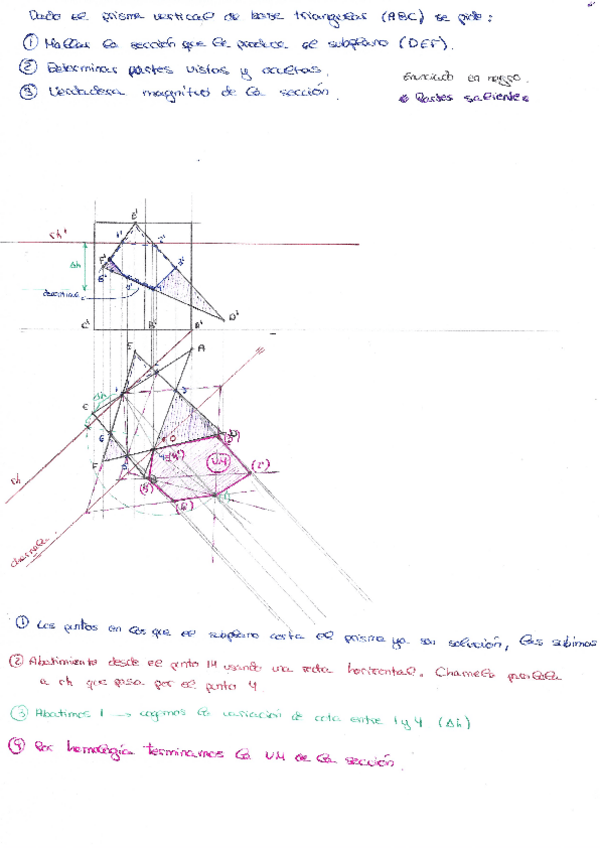 Dado el prisma vertical de base triangular (ABC) se pide:
① Hallar la sección que le produce el subplano (DEF).
② Determinar partes vistas y ocultas.
③ Verdadera magnitud de la sección.
Enunciado en negro.
Partes salientes
ch'
Δh
E'
F'
D'
C'
B'
A'
E
A
C
F
D
ch
charnela
VM
① Los puntos en los que el subplano corta el prisma ya son solución, los subimos
② Abatimiento desde el punto 14 usando una recta horizontal. Charnela paralela
a ch que pasa por el punto 4.
③ Abatimos 1 → cogemos la variación de cota entre 1 y 4 (Δh)
④ Por homología terminamos la VM de la sección.